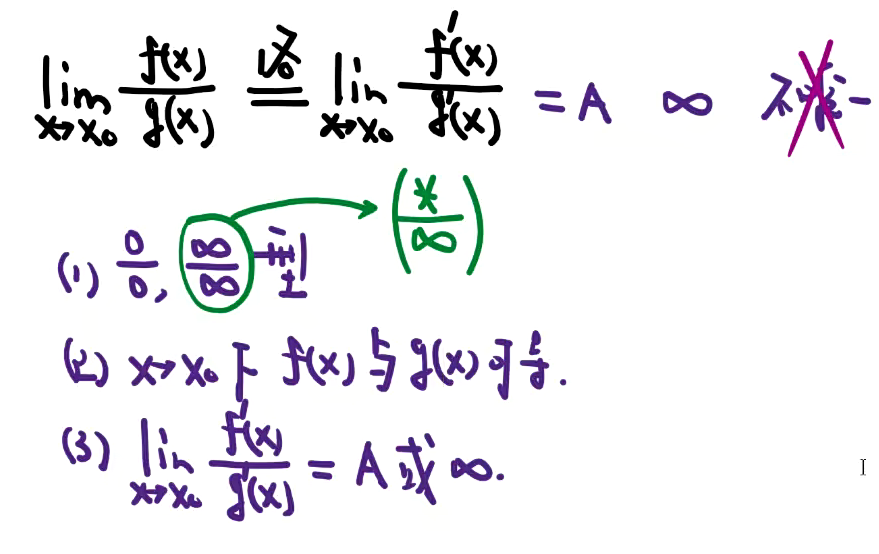 lim_{x→x₀} f(x)/g(x) = lim_{x→x₀} f'(x)/g'(x) = A ∞
(*/∞)
(1) 0/0, ∞/∞ 型
(2) x→x₀下 f(x)与g(x)可导.
(3) lim_{x→x₀} f'(x)/g'(x) = A 或 ∞.